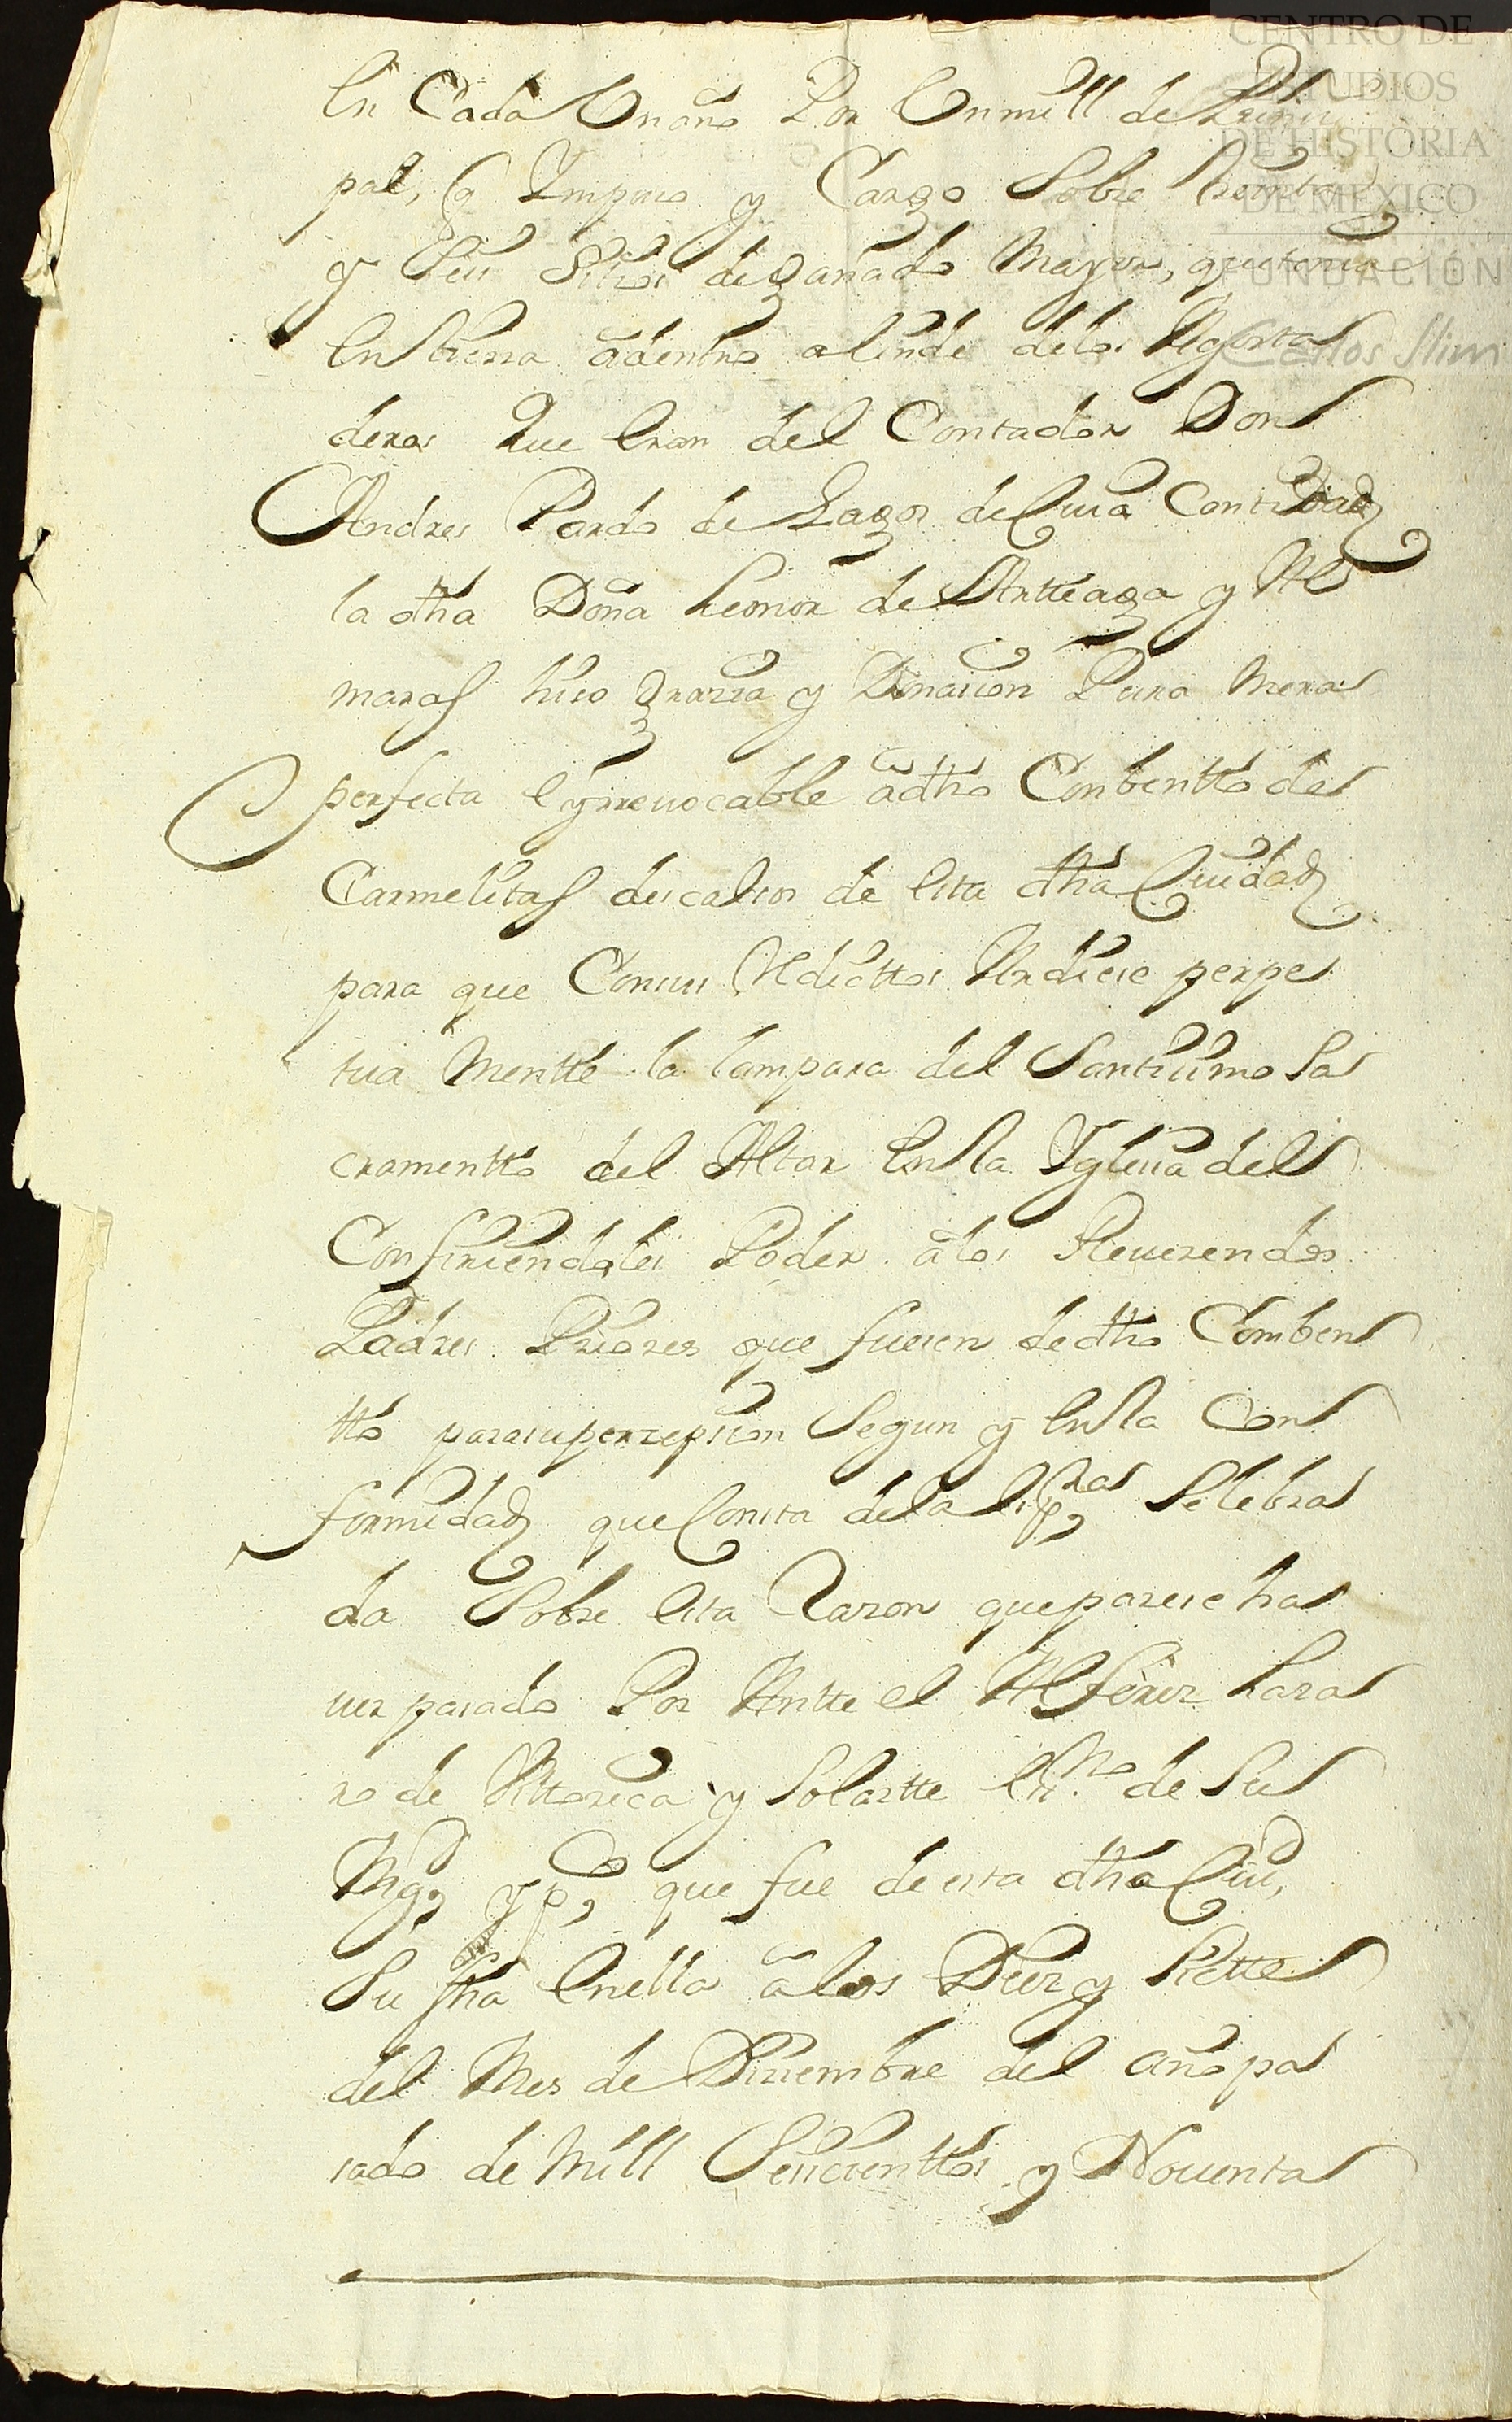 CENTRO DE
ESTUDIOS
DE HISTORIA
DE MEXICO
FUNDACIÓN
Carlos Slim
En Cada Un año Por Un mill de Prinsi
pal, q Impuso y Cargo Sobre treinta
y Seis Sitios de ganado Mayor, que tenia
En tierra adentro a linde delos Agosta
deros Que Eran del Contador Don
Andres Pardo de Lagos de Cuia Cantidad
la dha Doña Leonor de Artteaga y Al
maras hiso grazia y Donasion Pura Mera
perfecta E yrreuocable â dho Conbentto de
Carmelitas descalsos de esta dha Ciudad
para que Con sus Redittos Ardiese perpe
tua Mentte la lampara del Santisimo Sa
cramentto del Altar En la Yglesia del
Confiriendoles Poder â los Reuerendos
Padres Priores que fuesen de dho Comben
tto para su persepsion Segun y En la Con
formidad que Consta de la esSpras Selebra
da Sobre esta Razon que parese ha
uer pasado Por Antte el Alferez Lasa
ro de Attorica y Solartte Esno de Su
Mgd, y pp, que fue de esta dha Ciud,
Su fha En ella â los Diez y Siette
del Mes de Diziembre del año pa
sado de Mill Seiscienttos y Nouenta